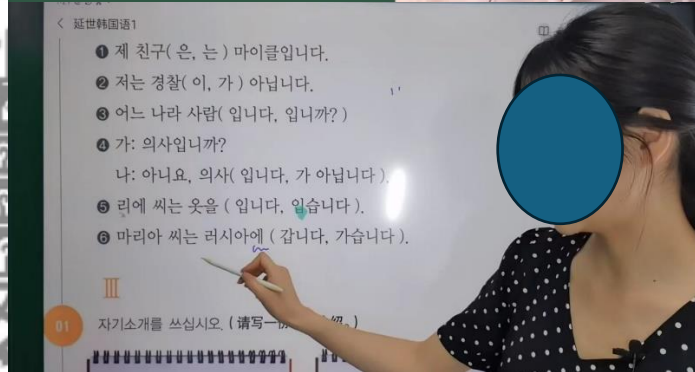 < 延世韩国语1
❶ 제 친구( 은, 는 ) 마이클입니다.
❷ 저는 경찰( 이, 가 ) 아닙니다.
❸ 어느 나라 사람( 입니다, 입니까? )
❹ 가: 의사입니까?
나: 아니요, 의사( 입니다, 가 아닙니다 ).
❺ 리에 씨는 옷을 ( 입니다, 입습니다 ).
❻ 마리아 씨는 러시아에 ( 갑니다, 가습니다 ).
Ⅲ
01 자기소개를 쓰십시오. ( 请写一份 绍。)